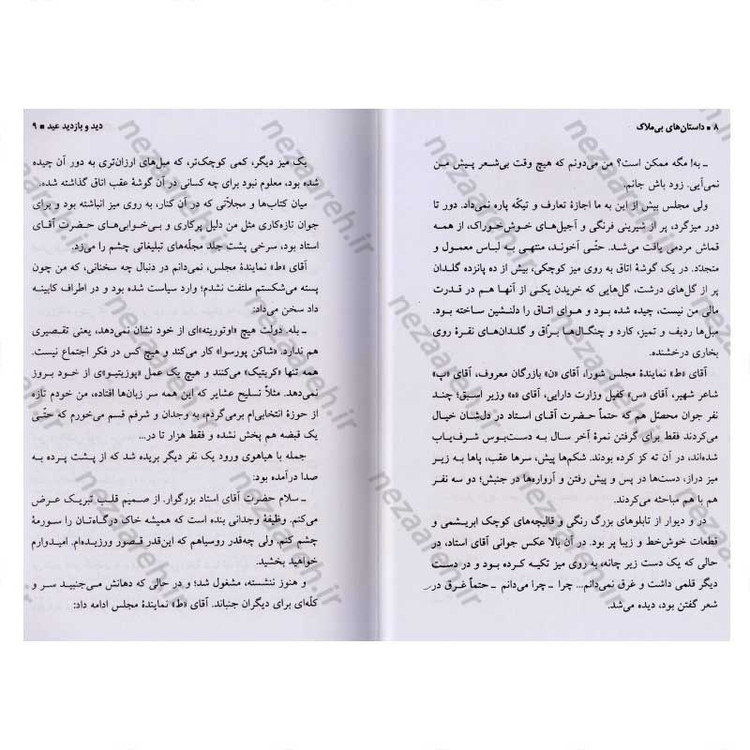 ۸ ■ داستان‌های بی‌ملاک
ـ به! مگه ممکن است؟ من می‌دونم که هیچ وقت بی‌شعر پیش من
نمی‌آیی. زود باش جانم.
ولی مجلس بیش از این به ما اجازهٔ تعارف و تیکّه پاره نمی‌داد. دور تا
دور میزگرد، پر از شیرینی فرنگی و آجیل‌های خوش‌خوراک، از همه
قماش مردمی یافت می‌شد. حتّی آخوند، منتهی به لباس معمول و
متجدّد. در یک گوشهٔ اتاق به روی میز کوچکی، بیش از ده پانزده گلدان
پر از گل‌های درشت، گل‌هایی که خریدن یکی از آنها هم در قدرت
مالی من نیست، چیده شده بود و هوای اتاق را دلنشین ساخته بود.
مبل‌ها ردیف و تمیز، کارد و چنگال‌ها برّاق و گلدان‌های نقره روی
بخاری درخشنده.
آقای «ط» نمایندهٔ مجلس شورا، آقای «ن» بازرگان معروف، آقای «پ»
شاعر شهیر، آقای «س» کفیل وزارت دارایی، آقای «ه» وزیر اسبق؛ چند
نفر جوان محصل هم که حتماً حضرت آقای استاد در دل‌شان خیال
می‌کردند فقط برای گرفتن نمرهٔ آخر سال به دست‌بوس شرف‌یاب
شده‌اند، در آن ته کز کرده بودند. شکم‌ها پیش، سرها عقب، پاها به زیر
میز دراز، دست‌ها در پس و پیش رفتن و آرواره‌ها در جنبش؛ دو سه نفر
هم با هم مباحثه می‌کردند.
در و دیوار از تابلوهای بزرگ رنگی و قالیچه‌های کوچک ابریشمی و
قطعات خوش‌خط و زیبا پر بود. در آن بالا عکس جوانی آقای استاد، در
حالی که یک دست زیر چانه، به روی میز تکیه کرده بود و در دست
دیگر قلمی داشت و غرق نمی‌دانم... چرا ـ چرا می‌دانم ـ حتماً غرق در
شعر گفتن بود، دیده می‌شد.
دید و بازدید عید ■ ۹
یک میز دیگر، کمی کوچک‌تر، که مبل‌های ارزان‌تری به دور آن چیده
شده بود، معلوم نبود برای چه کسانی در آن گوشهٔ عقب اتاق گذاشته شده.
میان کتاب‌ها و مجلّاتی که در آن کنار، به روی میز انباشته بود و
جوان تازه‌کاری مثل من دلیل پرکاری و بی‌خوابی‌های حضرت آقای
استاد بود، سرخی پشت جلد مجلّه‌های تبلیغاتی چشم را می‌زد.
آقای «ط» نمایندهٔ مجلس، نمی‌دانم در دنبال چه سخنانی، که من چون
پسته می‌شکستم ملتفت نشدم؛ وارد سیاست شده بود و در اطراف کابینه
داد سخن می‌داد:
ـ بله. دولت هیچ «اوتوریته»ای از خود نشان نمی‌دهد، یعنی تقصیری
هم ندارد. «شاکن پورسوا» کار می‌کند و هیچ کس در فکر اجتماع نیست.
همه تنها «کریتیک» می‌کنند و هیچ یک عمل «پوزیتیو»ی از خود بروز
نمی‌دهد. مثلاً تسلیح عشایر که این همه سر زبان‌ها افتاده، من خودم تازه
از حوزهٔ انتخابی‌ام برمی‌گردم، به وجدان و شرفم قسم می‌خورم که حتّی
یک قبضه هم پخش نشده و فقط هزار تا در...
جمله با هیاهوی ورود یک نفر دیگر بریده شد که از پشت پرده به
صدا درآمده بود:
ـ سلام حضرت آقای استاد بزرگوار. از صمیم قلب تبریک عرض
می‌کنم. وظیفهٔ وجدانی بنده است که همیشه خاک درگاه‌تان را سورمهٔ
چشم کنم. ولی چه‌قدر روسیاهم که این‌قدر قصور ورزیده‌ام. امیدوارم
خواهید بخشید.
و هنوز ننشسته، مشغول شد؛ و در حالی که دهانش می‌جنبید سر و
کلّه‌ای برای دیگران جنباند. آقای «ط» نمایندهٔ مجلس ادامه داد:
nezaareh.ir